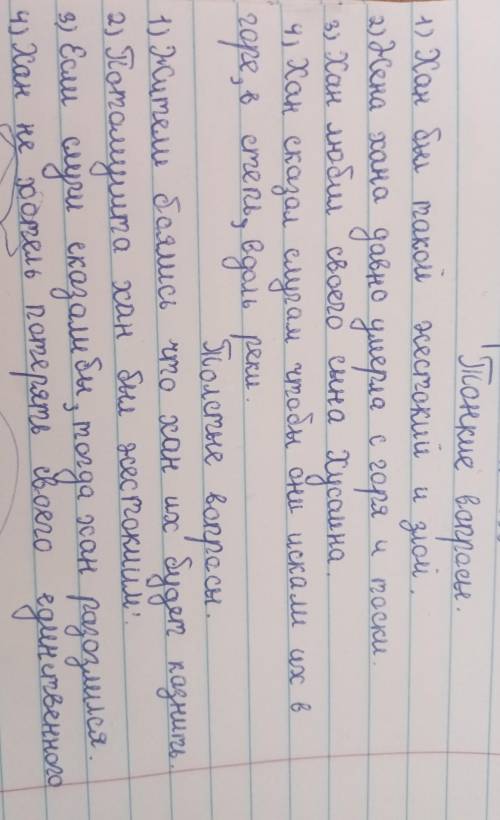 Тонкие вопросы.
1) Хан был такой жестокий и злой.
2) Жена хана давно умерла с горя и тоски.
3) Хан любил своего сына Хусаина.
4) Хан сказал слугам чтобы они искали их в
горе, в степь, вдоль реки.
Толстые вопросы.
1) Жители боялись что хан их будет казнить.
2) Потомушта хан был жестокиим.
3) Если слуги сказалибы, тогда хан разозлился.
4) Хан не хотель потерять своего единственного